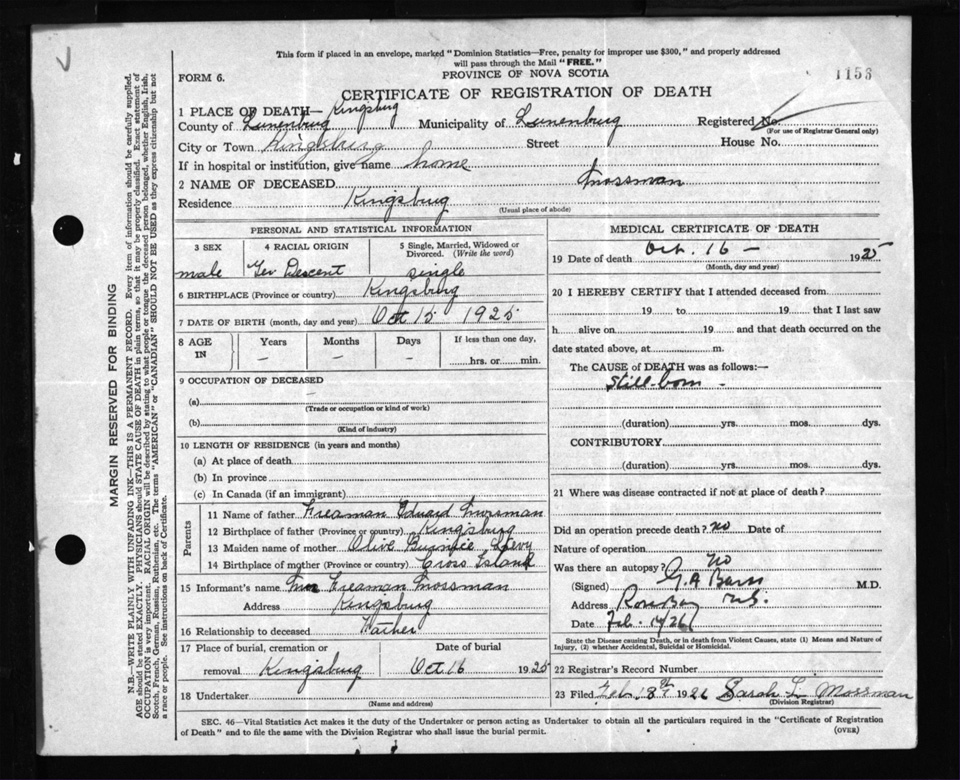 This form if placed in an envelope, marked "Dominion Statistics—Free, penalty for improper use $300," and properly addressed
will pass through the Mail "FREE."
FORM 6.
PROVINCE OF NOVA SCOTIA
1153
CERTIFICATE OF REGISTRATION OF DEATH
1 PLACE OF DEATH— Kingsburg
County of Lunenburg Municipality of Lunenburg Registered No.
(For use of Registrar General only)
City or Town Kingsburg Street House No.
If in hospital or institution, give name home
2 NAME OF DECEASED Mossman
Residence Kingsburg
(Usual place of abode)
PERSONAL AND STATISTICAL INFORMATION
3 SEX 4 RACIAL ORIGIN 5 Single, Married, Widowed or
Divorced. (Write the word)
male Ger Descent single
6 BIRTHPLACE (Province or country) Kingsburg
7 DATE OF BIRTH (month, day and year) Oct 15 1925
8 AGE IN Years Months Days If less than one day,
— — — hrs. or min.
9 OCCUPATION OF DECEASED
(a)
(Trade or occupation or kind of work)
(b)
(Kind of industry)
10 LENGTH OF RESIDENCE (in years and months)
(a) At place of death
(b) In province
(c) In Canada (if an immigrant)
Parents
11 Name of father Freaman Eduard Mossman
12 Birthplace of father (Province or country) Kingsburg
13 Maiden name of mother Olive
14 Birthplace of mother (Province or country) Cross Island
15 Informant's name Freaman Mossman
Address Kingsburg
16 Relationship to deceased Father
17 Place of burial, cremation or Date of burial
removal Kingsburg Oct 16 1925
18 Undertaker
(Name and address)
MEDICAL CERTIFICATE OF DEATH
19 Date of death Oct. 16 — 1925
(Month, day and year)
20 I HEREBY CERTIFY that I attended deceased from
19 to 19 that I last saw
h alive on 19 and that death occurred on the
date stated above, at m.
The CAUSE of DEATH was as follows:—
Still-born —
(duration) yrs. mos. dys.
CONTRIBUTORY
(duration) yrs. mos. dys.
21 Where was disease contracted if not at place of death?
Did an operation precede death? no Date of
Nature of operation
Was there an autopsy? no
(Signed) G.A. M.D.
Address Rose Bay N.S.
Date Feb. 26
State the Disease causing Death, or in death from Violent Causes, state (1) Means and Nature of
Injury, (2) whether Accidental, Suicidal or Homicidal.
22 Registrar's Record Number
23 Filed Feb. 8th 1926 Sarah L. Mossman
(Division Registrar)
SEC. 46—Vital Statistics Act makes it the duty of the Undertaker or person acting as Undertaker to obtain all the particulars required in the "Certificate of Registration
of Death" and to file the same with the Division Registrar who shall issue the burial permit.
(OVER)
MARGIN RESERVED FOR BINDING
N.B.—WRITE PLAINLY WITH UNFADING INK—THIS IS A PERMANENT RECORD. Every item of information should be carefully supplied.
AGE should be stated EXACTLY. PHYSICIANS should STATE CAUSE OF DEATH in plain terms, so that it may be properly classified. Exact statement of
OCCUPATION is very important. RACIAL ORIGIN will be described by stating to what people or tongue the deceased person belonged, whether English, Irish,
Scotch, French, German, Russian, Ruthenian, etc. The terms "AMERICAN" or "CANADIAN" SHOULD NOT BE USED as they express citizenship but not
a race or people. See instructions on back of Certificate.